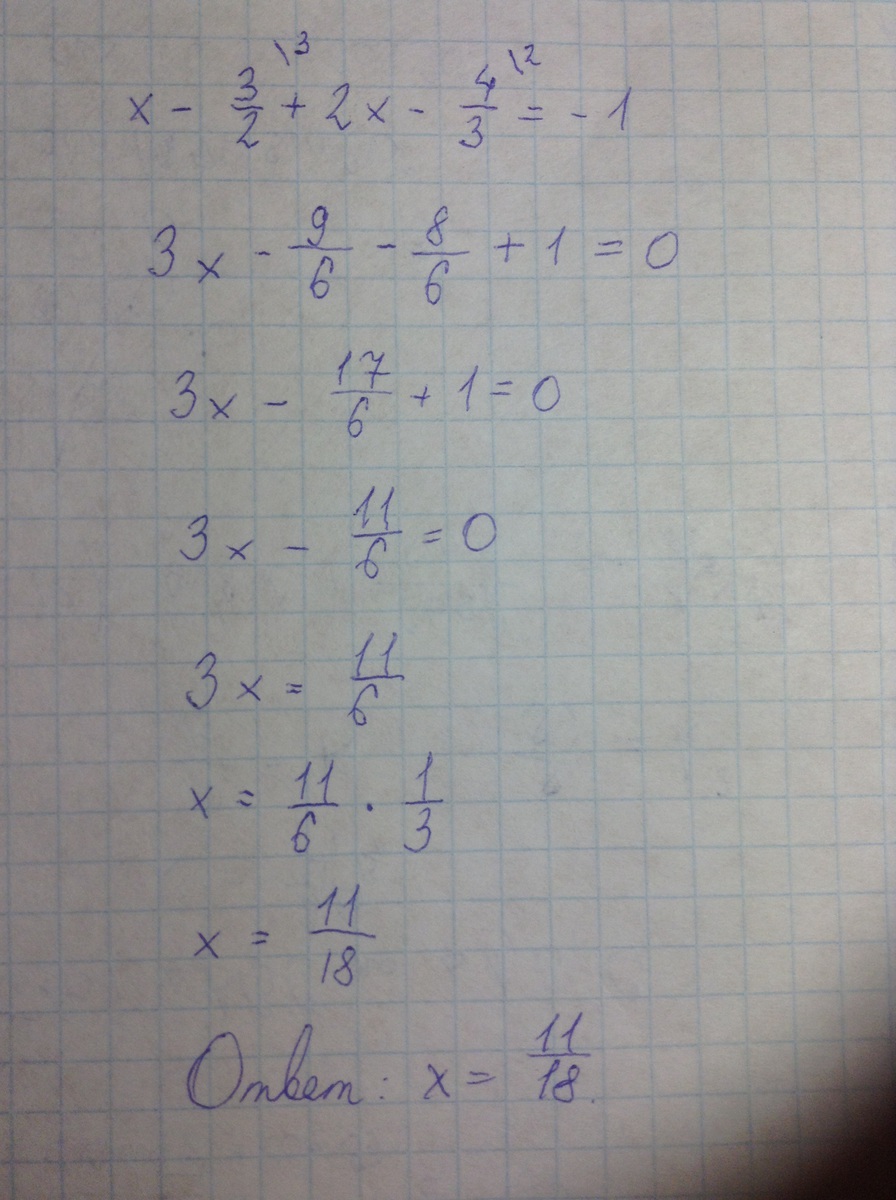 x - 3/2 \3 + 2x - 4/3 \2 = -1
3x - 9/6 - 8/6 + 1 = 0
3x - 17/6 + 1 = 0
3x - 11/6 = 0
3x = 11/6
x = 11/6 · 1/3
x = 11/18
Ответ: x = 11/18.